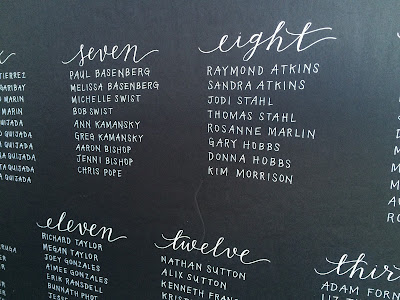 TIERREZ
GARIBAY
MARIN
MARIN
QUIJADA
QUIJADA
QUIJADA
QUIJADA
QUIJADA
seven
PAUL BASENBERG
MELISSA BASENBERG
MICHELLE SWIST
BOB SWIST
ANN KAMANSKY
GREG KAMANSKY
AARON BISHOP
JENNI BISHOP
CHRIS POPE
eight
RAYMOND ATKINS
SANDRA ATKINS
JODI STAHL
THOMAS STAHL
ROSANNE MARLIN
GARY HOBBS
DONNA HOBBS
KIM MORRISON
eleven
RICHARD TAYLOR
MEGAN TAYLOR
JOEY GONZALES
AIMEE GONZALES
ERIK RANSDELL
BUNNATH PHOT
JESSE
twelve
NATHAN SUTTON
ALIX SUTTON
KENNETH FRAN
KRIST
thir
ADAM FORN